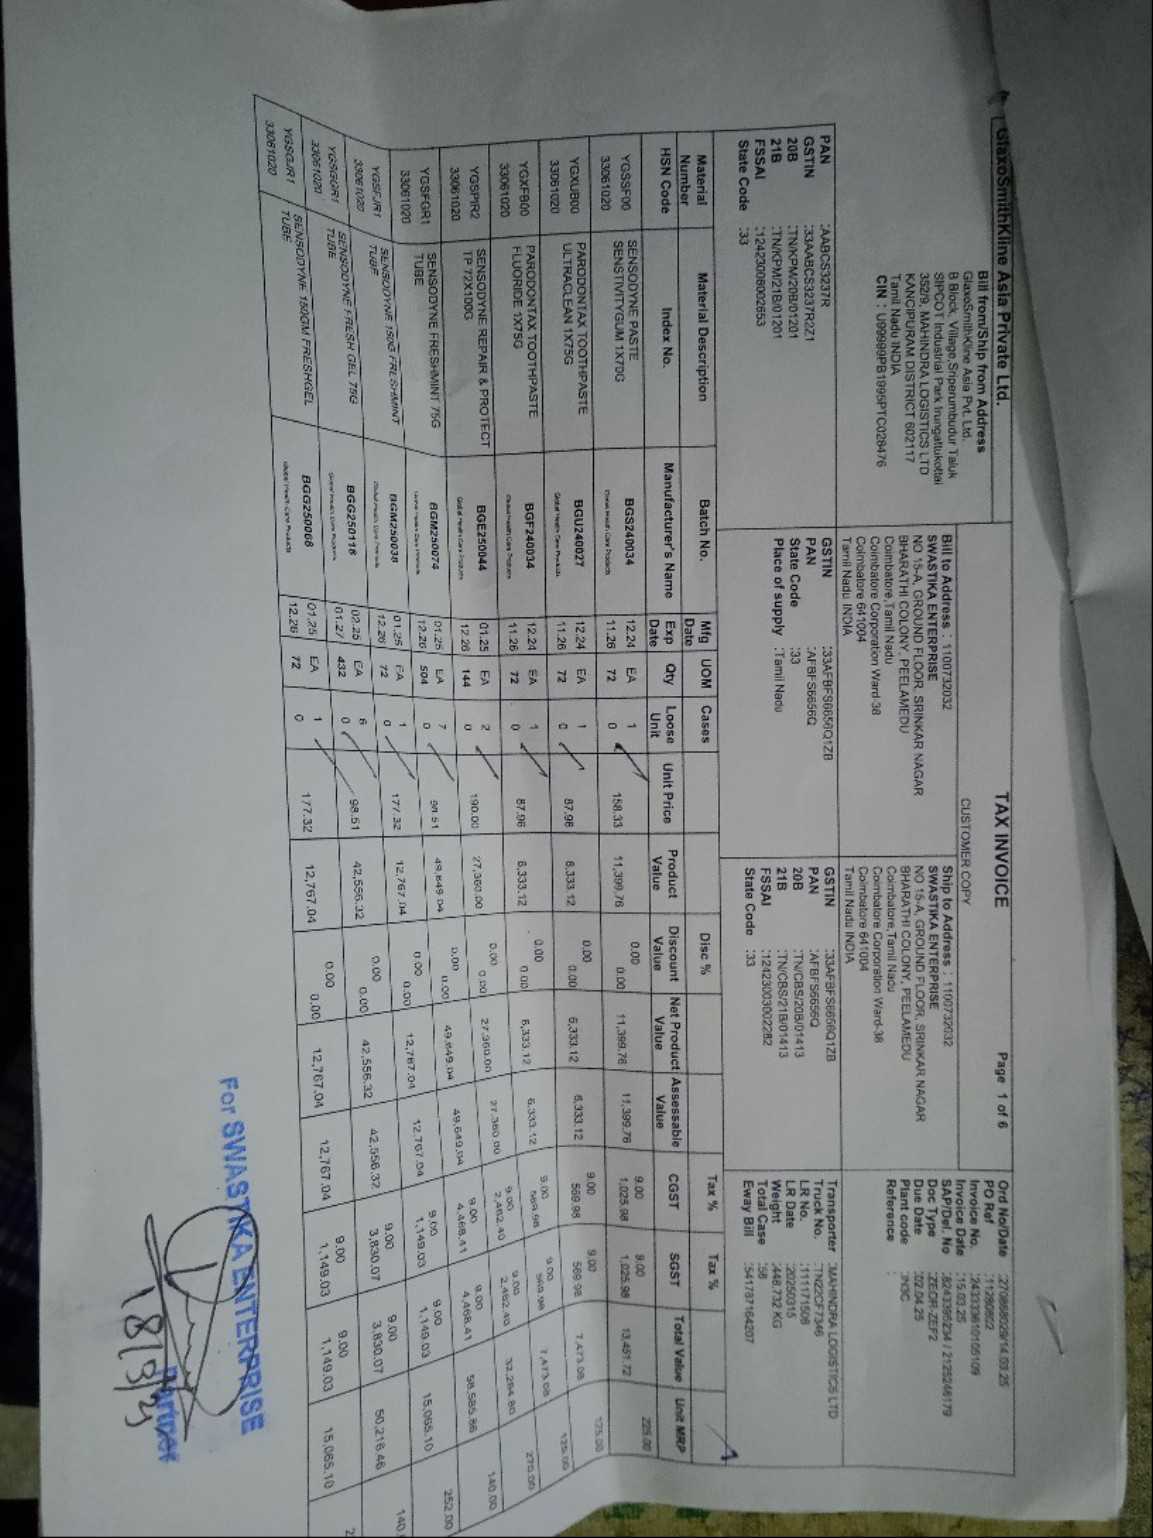 GlaxoSmithKline Asia Private Ltd.
TAX INVOICE
Page 1 of 6
CUSTOMER COPY
Bill from/Ship from Address
GlaxoSmithKline Asia Pvt. Ltd.
B Block, Village,Sriperumbudur Taluk
SIPCOT Industrial Park Irungattukottai
352/9, MAHINDRA LOGISTICS LTD
KANCIPURAM DISTRICT 602117
Tamil Nadu INDIA
CIN : U99999PB1995PTC028476
Bill to Address : 1100732032
SWASTIKA ENTERPRISE
NO 15-A, GROUND FLOOR, SRINKAR NAGAR
BHARATHI COLONY, PEELAMEDU
Coimbatore,Tamil Nadu
Coimbatore Corporation Ward-38
Coimbatore 641004
Tamil Nadu INDIA
Ship to Address : 1100732032
SWASTIKA ENTERPRISE
NO 15-A, GROUND FLOOR, SRINKAR NAGAR
BHARATHI COLONY, PEELAMEDU
Coimbatore,Tamil Nadu
Coimbatore Corporation Ward-38
Coimbatore 641004
Tamil Nadu INDIA
Ord No/Date
PO Ref :11280802
Invoice No. :2433361010105109
Invoice Date :15.03.25
SAP/Del. No
Doc Type :ZEOR-ZEF2
Due Date :02.04.25
Plant code :IN3C
Reference :
PAN :AABCS3237R
GSTIN :33AABCS3237R2Z1
20B :TN/KPM/20B/01201
21B :TN/KPM/21B/01201
FSSAI :12423008002653
State Code :33
GSTIN :33AFBFS6656Q1ZB
PAN :AFBFS6656Q
State Code :33
Place of supply :Tamil Nadu
GSTIN :33AFBFS6656Q1ZB
PAN :AFBFS6656Q
20B :TN/CBS/20B/01413
21B :TN/CBS/21B/01413
FSSAI :12423003002282
State Code :33
Transporter :MAHINDRA LOGISTICS LTD
Truck No. :TN22CF7346
LR No. :111171508
LR Date :20250315
Weight :448.732 KG
Total Case :58
Eway Bill :541787164207
Material Number HSN Code
Material Description Index No.
Batch No. Manufacturer's Name
Mfg Date Exp Date
UOM Qty
Cases Loose Unit
Unit Price
Product Value
Disc % Discount Value
Net Product Value
Assessable Value
Tax % CGST
Tax % SGST
Total Value
Unit MRP
YGSSF00 SENSODYNE PASTE BGS240034 12.24 EA 1 158.33 11,399.76 0.00 11,399.76 11,399.76 9.00 9.00 13,451.72 225.00
33061020 SENSTIVITYGUM 1X70G Global Health Care Products 11.26 72 0 0.00 1,025.98 1,025.98
YGXUB00 PARODONTAX TOOTHPASTE BGU240027 12.24 EA 1 87.96 6,333.12 0.00 6,333.12 6,333.12 9.00 9.00 7,473.08 125.00
33061020 ULTRACLEAN 1X75G Global Health Care Products 11.26 72 0 0.00 569.98 569.98
YGXFB00 PARODONTAX TOOTHPASTE BGF240034 12.24 EA 1 87.96 6,333.12 0.00 6,333.12 6,333.12 9.00 9.00 7,473.08 125.00
33061020 FLUORIDE 1X75G Global Health Care Products 11.26 72 0 0.00 569.98 569.98
YGSPIR2 SENSODYNE REPAIR & PROTECT BGE250044 01.25 EA 2 190.00 27,360.00 0.00 27,360.00 27,360.00 9.00 9.00 32,284.80 270.00
33061020 TP 72X100G Global Health Care Products 12.26 144 0 0.00 2,462.40 2,462.40
YGSFGR1 SENSODYNE FRESHMINT 75G BGM250074 01.25 EA 7 98.51 49,649.04 0.00 49,649.04 49,649.04 9.00 9.00 58,585.86 140.00
33061020 TUBE Global Health Care Products 12.26 504 0 0.00 4,468.41 4,468.41
YGSFJR1 SENSODYNE 150G FRESHMINT BGM250038 01.25 EA 1 177.32 12,767.04 0.00 12,767.04 12,767.04 9.00 9.00 15,065.10 252.00
33061020 TUBE Global Health Care Products 12.26 72 0 0.00 1,149.03 1,149.03
YGSGGR1 SENSODYNE FRESH GEL 75G BGG250118 02.25 EA 6 98.51 42,556.32 0.00 42,556.32 42,556.32 9.00 9.00 50,216.46 140.
33061020 TUBE Global Health Care Products 01.27 432 0 0.00 3,830.07 3,830.07
YGSGJR1 SENSODYNE 150GM FRESHGEL BGG250068 01.25 EA 1 177.32 12,767.04 0.00 12,767.04 12,767.04 9.00 9.00 15,065.10 2
33061020 TUBE Global Health Care Products 12.26 72 0 0.00 1,149.03 1,149.03
For SWASTIKA ENTERPRISE
Partner
18/3/25